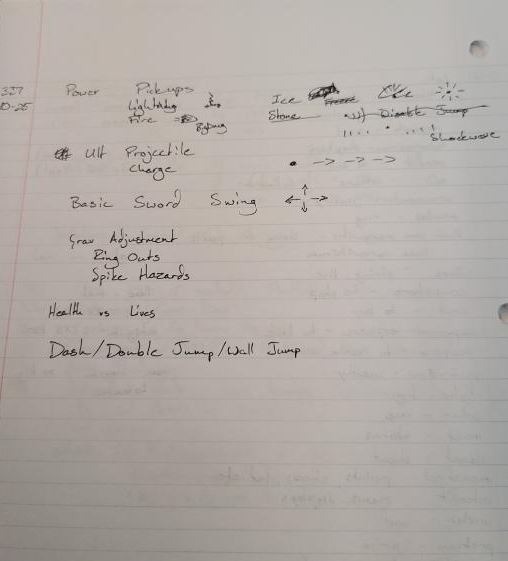 327 Power Pickups
10-25 Lightning Ice
Fire Stone w/ Disable Jump
Shockwave
Ult Projectile
Charge
Basic Sword Swing
Grav Adjustment
Ring Outs
Spike Hazards
Health vs Lives
Dash/Double Jump/Wall Jump